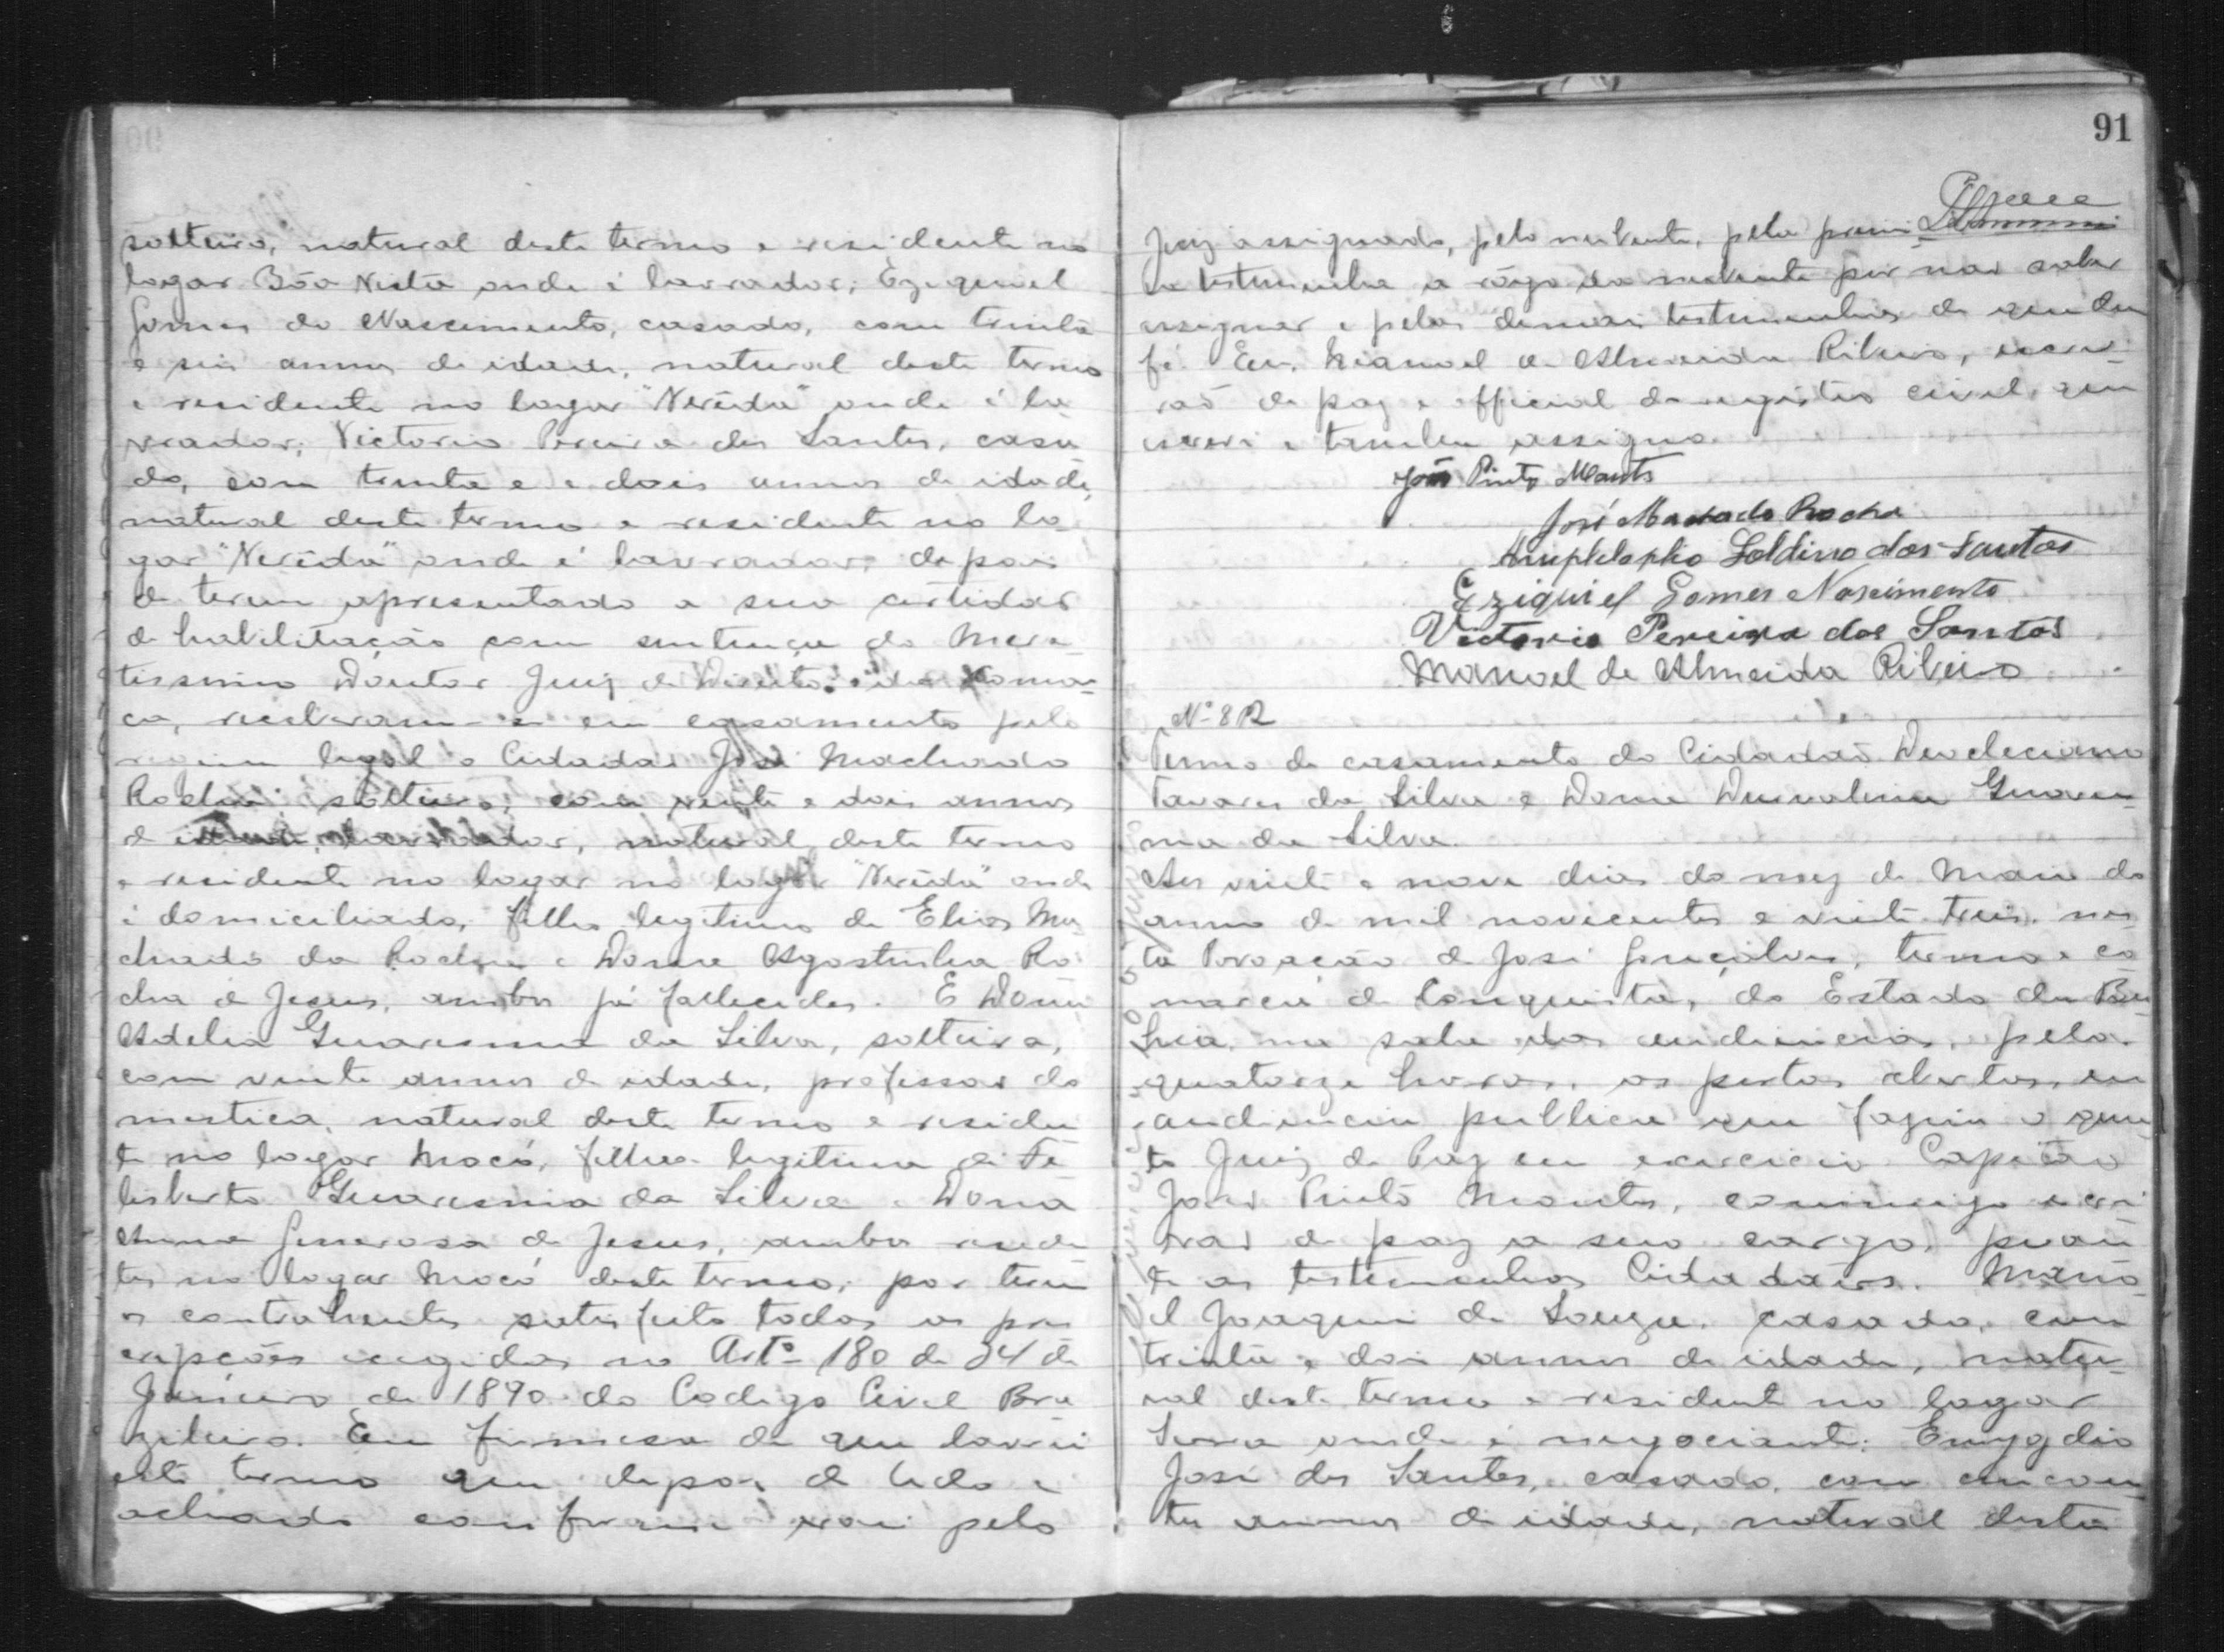 solteiro, natural deste termo e residente no
logar Bôa Vista onde é lavrador; Ezequiel
Gomes do Nascimento, casado, com trinta
e seis annos de idade, natural deste termo
e residente no logar "Verêda" onde é la
vrador; Victorio Pereira dos Santos, casa
do, com trinta e e dois annos de idade,
natural deste termo e residente no lo
gar "Verêda" onde é lavrador, depois
de terem apresentado a sua certidão
de habilitação com sentença do Mere
tissimo Doutor Juiz de Direito da Comar
ca, receberam-se em casamento pelo
regimen legal o Cidadão José Machado
Rocha solteiro, com vinte e dois annos
de idade, lavrador, natural deste termo
e residente no logar no logar "Verêda" onde
é domiciliado, filho legitimo de Elias Ma
chado da Rocha e Donna Agostinha Ro
cha de Jesus, ambos já fallecidos. E Dona
Adelia Guaresma da Silva, solteira,
com vinte annos de idade, professar do
mestica, natural deste termo e residen
te no logar Mocó, filha legitima de Fe
lisberto Guaresma da Silva e Dona
Anna Generosa de Jesus, ambos residen
tes no logar Mocó deste termo, por terem
os contrahentes satisfeito todas as pres
cripções exigidas no Artº 180 de 24 de
Janeiro de 1890 do Codigo Civil Bra
zileiro. Em firmesa do que lavrei
este termo que depois de lido e
achado conforme vai pelo
91
Juiz assignado, pelo nubente, pela primei
ra testemunha a rôgo da nubente por não saber
assignar e pelas demais testemunhas do que dou
fé. Eu, Manoel de Almeida Ribeiro, escri
vão de paz e official do registro civil, que
escrevi e tambem assigno.
João Pinto Montes
José Machado Rocha
Amphlophio Soldino dos Santos
Eziquiel Gomes Nascimento
Victorio Pereira dos Santos
Manoel de Almeida Ribeiro
Nº 82
Termo de casamento do Cidadão Deocleciano
Tavares da Silva e Dona Durvalina Guares
ma da Silva.
Aos vinte e nove dias do mez de Maio do
anno de mil novecentos e vinte treis, nes
ta Povoação de José Gonçalves, termo e co
marca de Conquista, do Estado da Ba
hia, na sala das audiencias, pelas
quatorze horas, as portas abertas, em
audiencia publica que fazia o quin
to Juiz de Paz em exercicio Capitão
João Pinto Montes, commigo escri
vão de paz a seu cargo, peran
te as testemunhas Cidadãos. Mano
el Joaquim de Souza, casado, com
trinta e dois annos de idade, natu
ral deste termo e residente no logar
Serra onde é negociante: Emygdio
José dos Santos, casado, com cincoen
ta annos de idade, natural deste